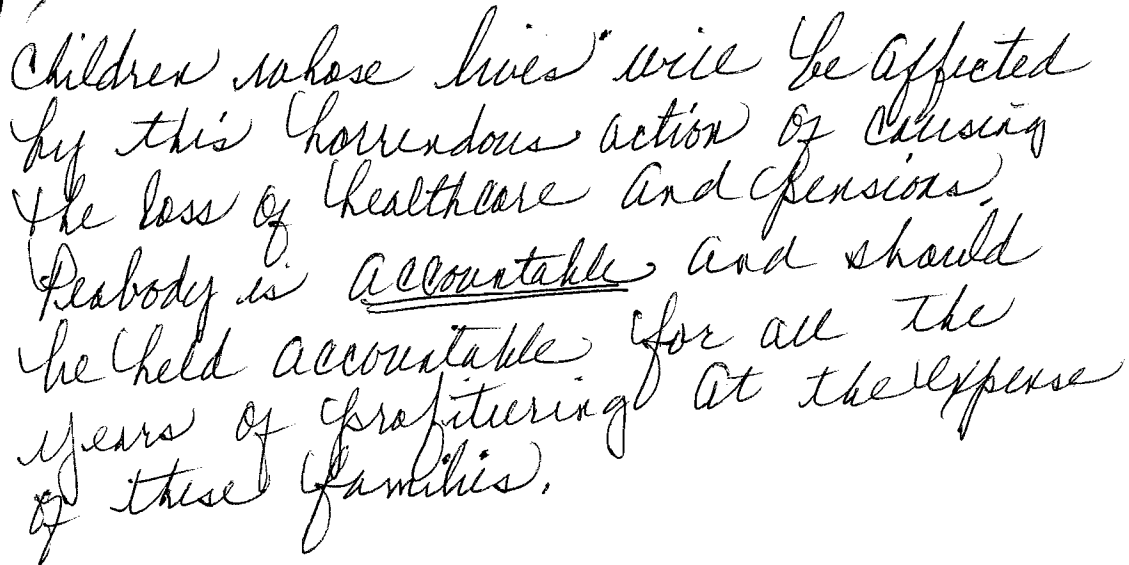 children whose lives will be affected
by this horrendous action of causing
the loss of healthcare and pensions.
Peabody is accountable and should
be held accountable for all the
years of profiteering at the expense
of these families.